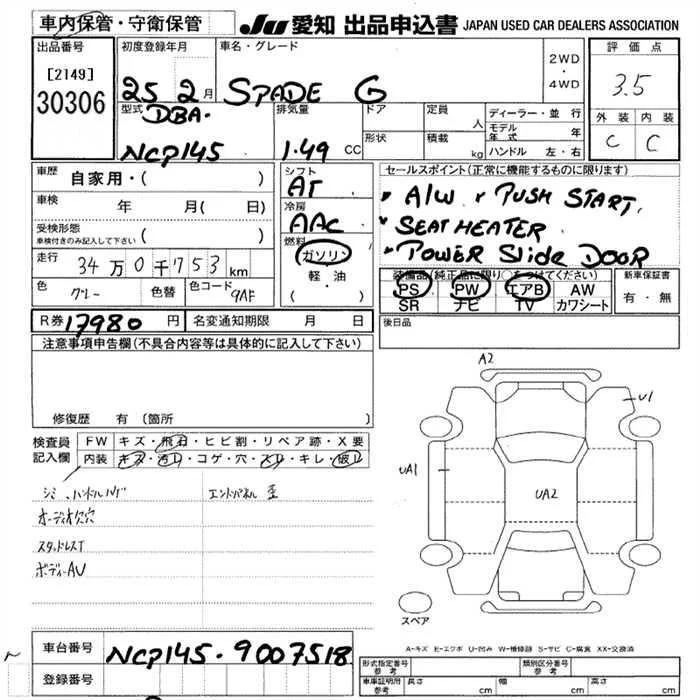 車内保管・守衛保管
JU 愛知 出品申込書 JAPAN USED CAR DEALERS ASSOCIATION
出品番号
[2149]
30306
初度登録年月
25 2月
車名・グレード
SPADE G
2WD
・
4WD
評価点
3.5
外装 内装
C C
型式
DBA-
NCP145
排気量
1.49 CC
ドア
形状
定員 人
積載 kg
ディーラー・並行
モデル年式 年
ハンドル 左・右
車歴
自家用・( )
車検 年 月( 日)
受検形態
車検付きのみ記入して下さい ( )
走行 34万0千753km
色 グレー 色替 色コード 9AF
シフト
AT
冷房
AAC
燃料
ガソリン
軽・油
( )
セールスポイント(正常に機能するものに限ります)
A/W PUSH START.
SEAT HEATER
POWER Slide DOOR
装備品(純正品に限り○をつけてください)
PS PW エアB AW
SR ナビ TV カワシート
新車保証書
有・無
R券 17980 円 名変通知期限 月 日
後日品
注意事項申告欄(不具合内容等は具体的に記入して下さい)
修復歴 有 (箇所 )
検査員
記入欄
FW キズ・飛石・ヒビ割・リペア跡・X要
内装 キズ・汚レ・コゲ・穴・スレ・キレ・破レ
シミ、ハンドルハゲ
エンドパネル歪
オーディオ欠穴
スタッドレスT
ボディーAU
A2
U1
UA1
UA2
スペア
A-キズ E-エクボ U-凹み W-補修跡 S-サビ C-腐食 XX-交換済
車台番号 NCP145-9007518
登録番号
形式指定番号 参考
類別区分番号 参考
車庫証明所 参考 長さ cm 幅 cm 高さ cm